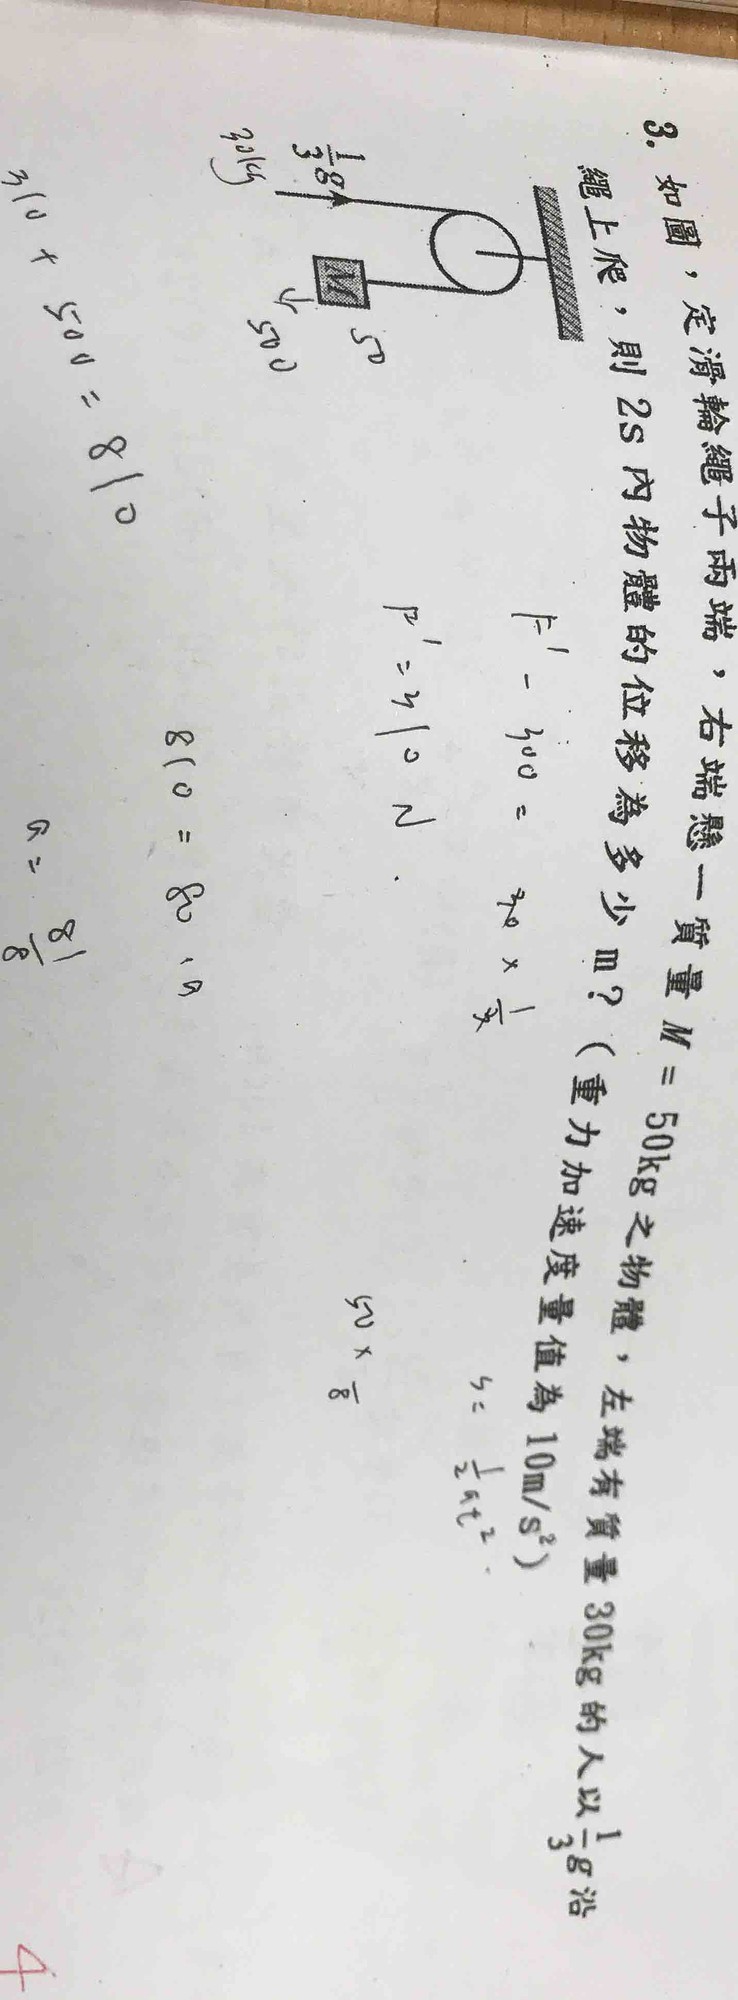 3. 如圖，定滑輪繩子兩端，右端懸一質量 M = 50kg 之物體，左端有質量 30kg 的人以 1/3 g 沿
繩上爬，則 2s 內物體的位移為多少 m？（重力加速度量值為 10m/s²）
1/3 g
30kg
M
50
500
F' - 300 = 30 × 1/3
F' = 310 N
S = 1/2 at²
50 × /8
310 + 500 = 810
810 = 80 · a
a = 81/8
4